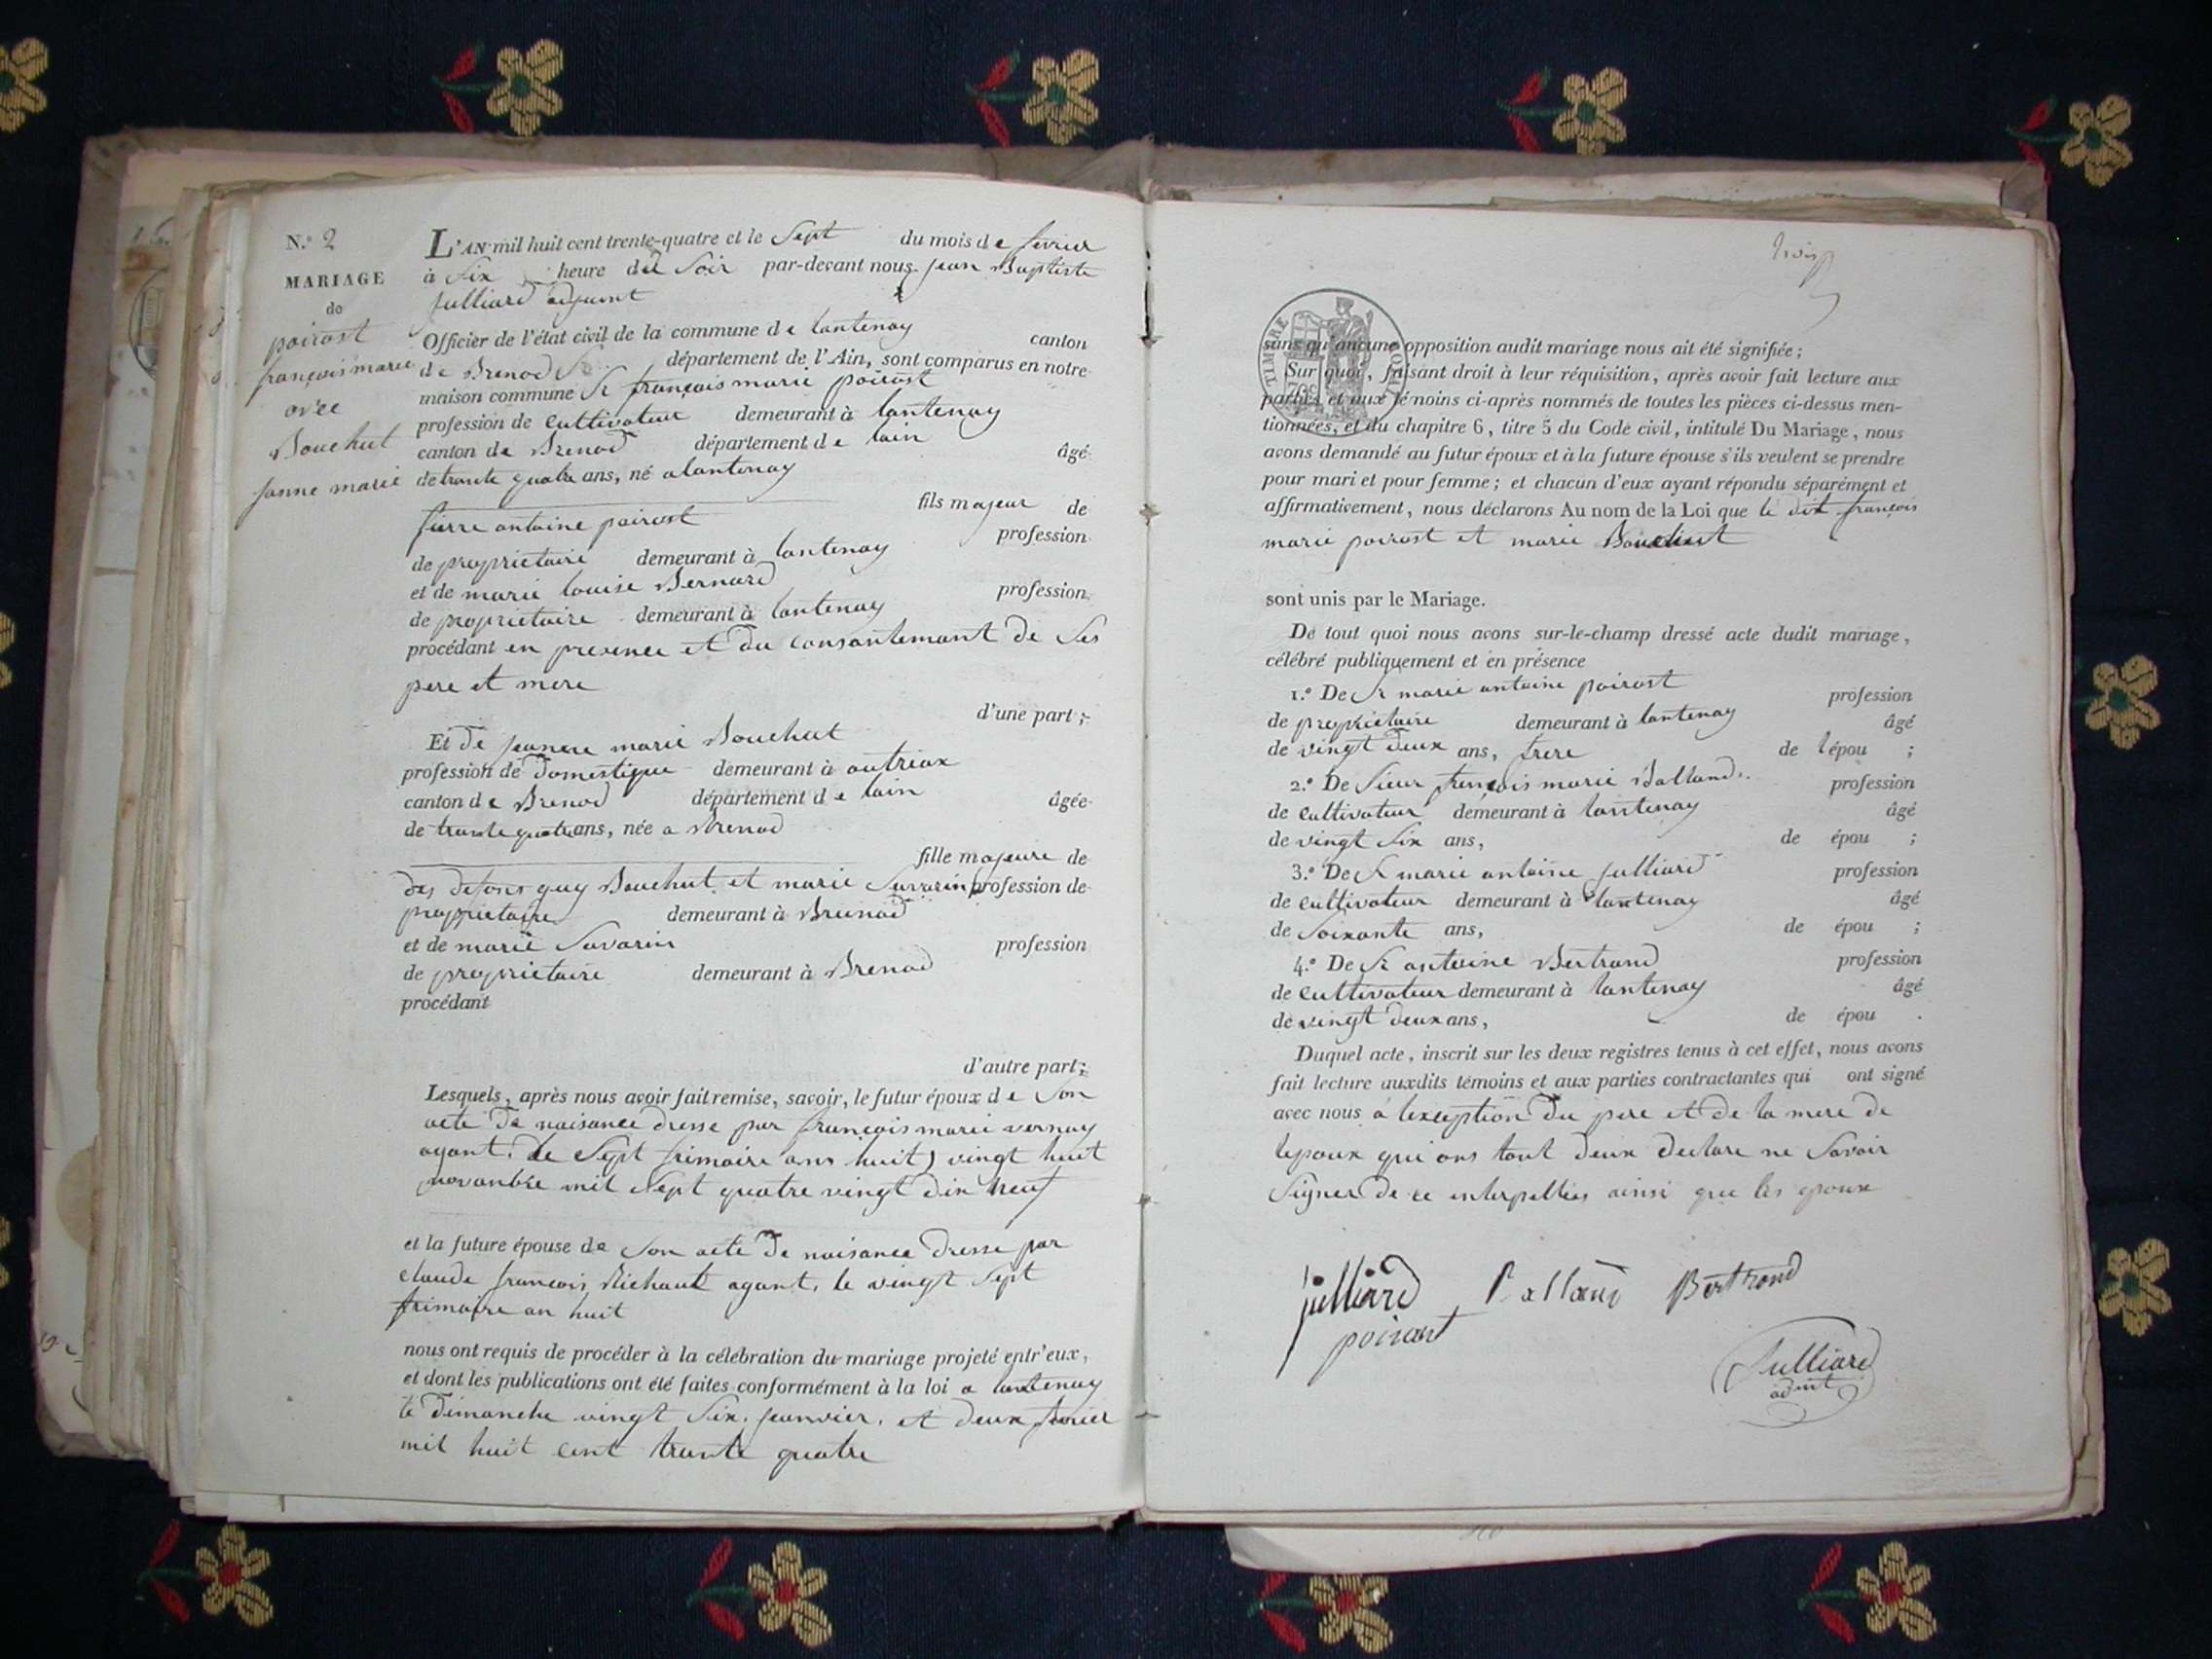 N.° 2
MARIAGE
de
poirost
françois marie
avec
Bouchut
janne marie
L'AN mil huit cent trente-quatre et le Sept du mois de fevrier
à Six heure du Soir par-devant nous jean Baptiste
julliard adjoint
Officier de l'état civil de la commune de lantenay canton
de Brenod département de l'Ain, sont comparus en notre
maison commune Sr françois marie poirost
profession de cultivateur demeurant à lantenay
canton de Brenod département de lain âgé
de trante quatre ans, né a lantenay
fils majeur de
pierre antoine poirost profession
de proprietaire demeurant à lantenay
et de marie louise Bernard profession
de proprietaire demeurant à lantenay
procédant en presence et du consantemant de Ses
pere et mere
d'une part ;
Et de jeanne marie Bouchut
profession de domestique demeurant à outriax
canton de Brenod département de lain âgée
de trante quatre ans, née a Brenod
fille majeure de
des defons guy Bouchut et marie Savarin profession de
proprietaire demeurant à Brenod
et de marie Savarin profession
de proprietaire demeurant à Brenod
procédant
d'autre part ;
Lesquels, après nous avoir fait remise, savoir, le futur époux de Son
acte de naisance dresse par françois marie vernay
agant. le Sept frimaire ans huit) vingt huit
novanbre mil Sept quatre vingt dix neuf
et la future épouse de Son acte de naisance dresse par
claude françois Richaut agant, le vingt Sept
frimaire an huit
nous ont requis de procéder à la célébration du mariage projeté entr'eux,
et dont les publications ont été faites conformément à la loi a lantenay
le dimanche vingt Six janvier, et deux fevrier
mil huit cent trante quatre
TIMBRE ROYAL
70c
sans qu'aucune opposition audit mariage nous ait été signifiée ;
Sur quoi, faisant droit à leur réquisition, après avoir fait lecture aux
parties et aux témoins ci-après nommés de toutes les pièces ci-dessus men-
tionnées, et du chapitre 6, titre 5 du Code civil, intitulé Du Mariage, nous
avons demandé au futur époux et à la future épouse s'ils veulent se prendre
pour mari et pour femme ; et chacun d'eux ayant répondu séparément et
affirmativement, nous déclarons Au nom de la Loi que le dit françois
marie poirost et marie Bouchut
sont unis par le Mariage.
De tout quoi nous avons sur-le-champ dressé acte dudit mariage,
célébré publiquement et en présence
1.° De Sr marie antoine poirost profession
de proprietaire demeurant à lantenay âgé
de vingt deux ans, frere de lépou ;
2.° De Sieur françois marie Balland profession
de cultivateur demeurant à lantenay âgé
de vingt Six ans, de épou ;
3.° De Sr marie antoine julliard profession
de cultivateur demeurant à lantenay âgé
de Soixante ans, de épou ;
4.° De Sr antoine Bertrand profession
de cultivateur demeurant à lantenay âgé
de vingt deux ans, de épou .
Duquel acte, inscrit sur les deux registres tenus à cet effet, nous avons
fait lecture auxdits témoins et aux parties contractantes qui ont signé
avec nous a lexception du pere et de la mere de
lepoux qui ons tout deux declare ne Savoir
Signer de ce interpelles ainsi que les epoux
julliard Balland Bertrand
poirost
Julliard
adint